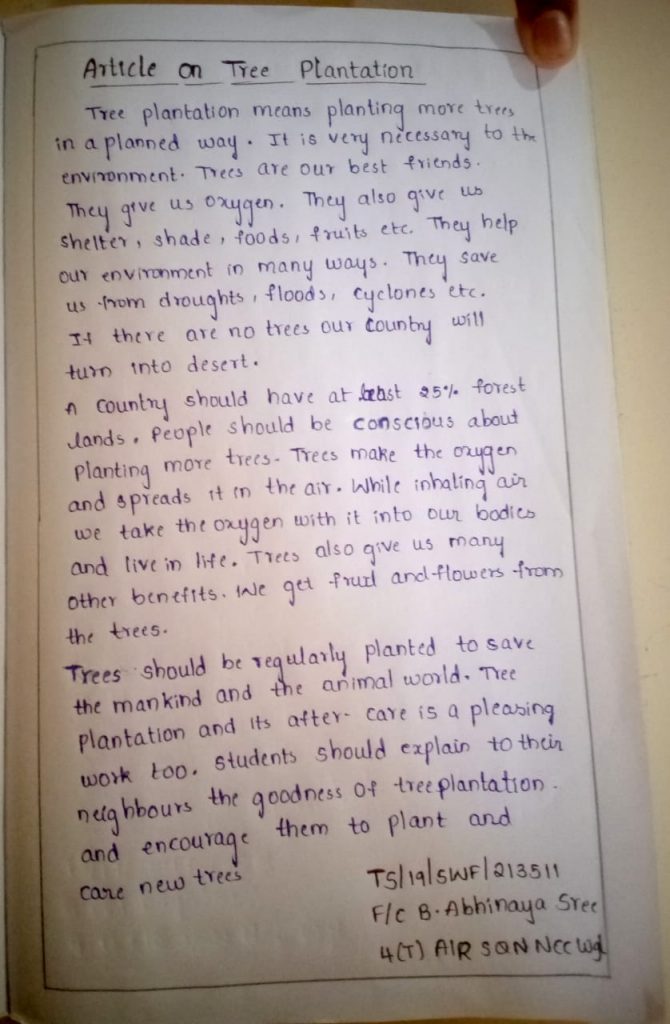 Article on Tree Plantation
Tree plantation means planting more trees
in a planned way. It is very necessary to the
environment. Trees are our best friends.
They give us oxygen. They also give us
shelter, shade, foods, fruits etc. They help
our environment in many ways. They save
us from droughts, floods, cyclones etc.
If there are no trees our country will
turn into desert.
A country should have at least 25% forest
lands. People should be conscious about
planting more trees. Trees make the oxygen
and spreads it in the air. While inhaling air
we take the oxygen with it into our bodies
and live in life. Trees also give us many
other benefits. We get fruit and flowers from
the trees.
Trees should be regularly planted to save
the mankind and the animal world. Tree
plantation and its after- care is a pleasing
work too. Students should explain to their
neighbours the goodness of treeplantation.
and encourage them to plant and
care new trees
TS/19/SWF/213511
F/C B. Abhinaya Sree
4(T) AIR SQN NCC Wgl